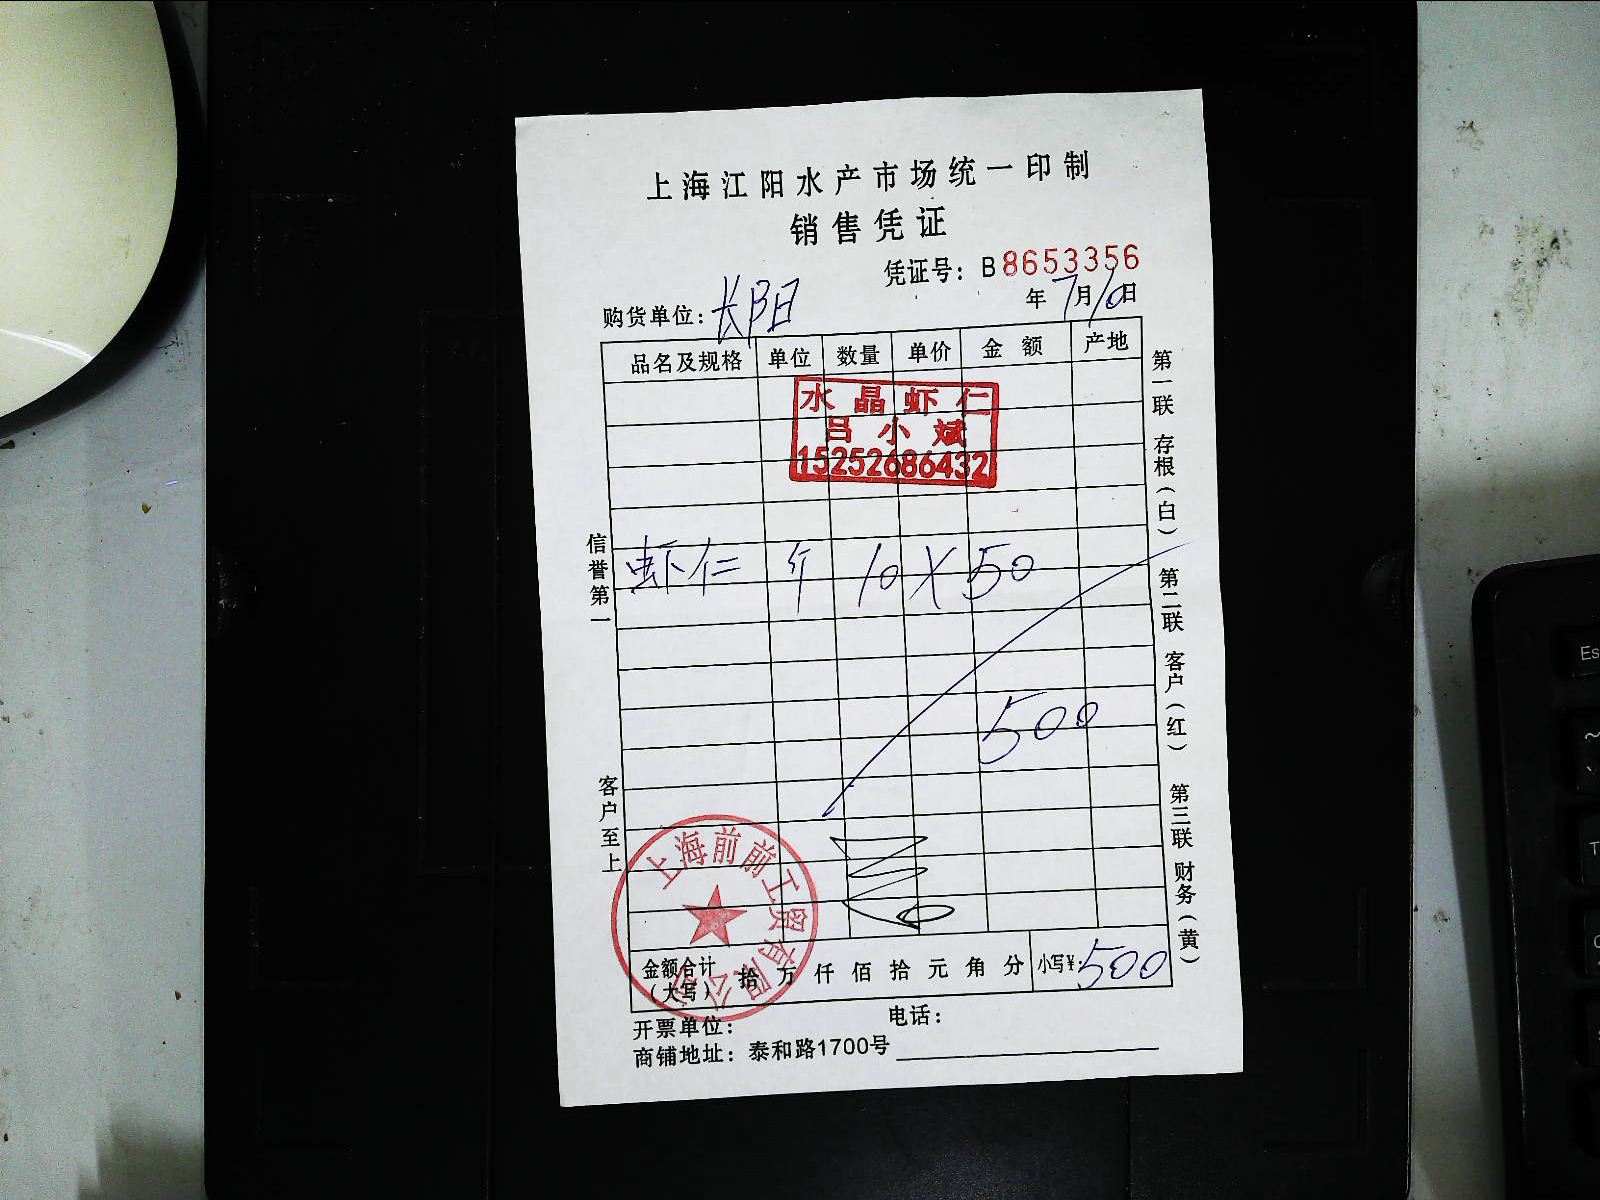 上海江阳水产市场统一印制
销售凭证
凭证号：B8653356
购货单位：长阳
年7月10日
品名及规格 单位 数量 单价 金额 产地
水晶虾仁
吕小斌
15252686432
虾仁 斤 10 X 50
500
信誉第一
客户至上
第一联 存根（白）
第二联 客户（红）
第三联 财务（黄）
上海前前工贸有限公司
金额合计（大写） 拾 万 仟 佰 拾 元 角 分 小写¥：500
开票单位： 电话：
商铺地址：泰和路1700号
Es